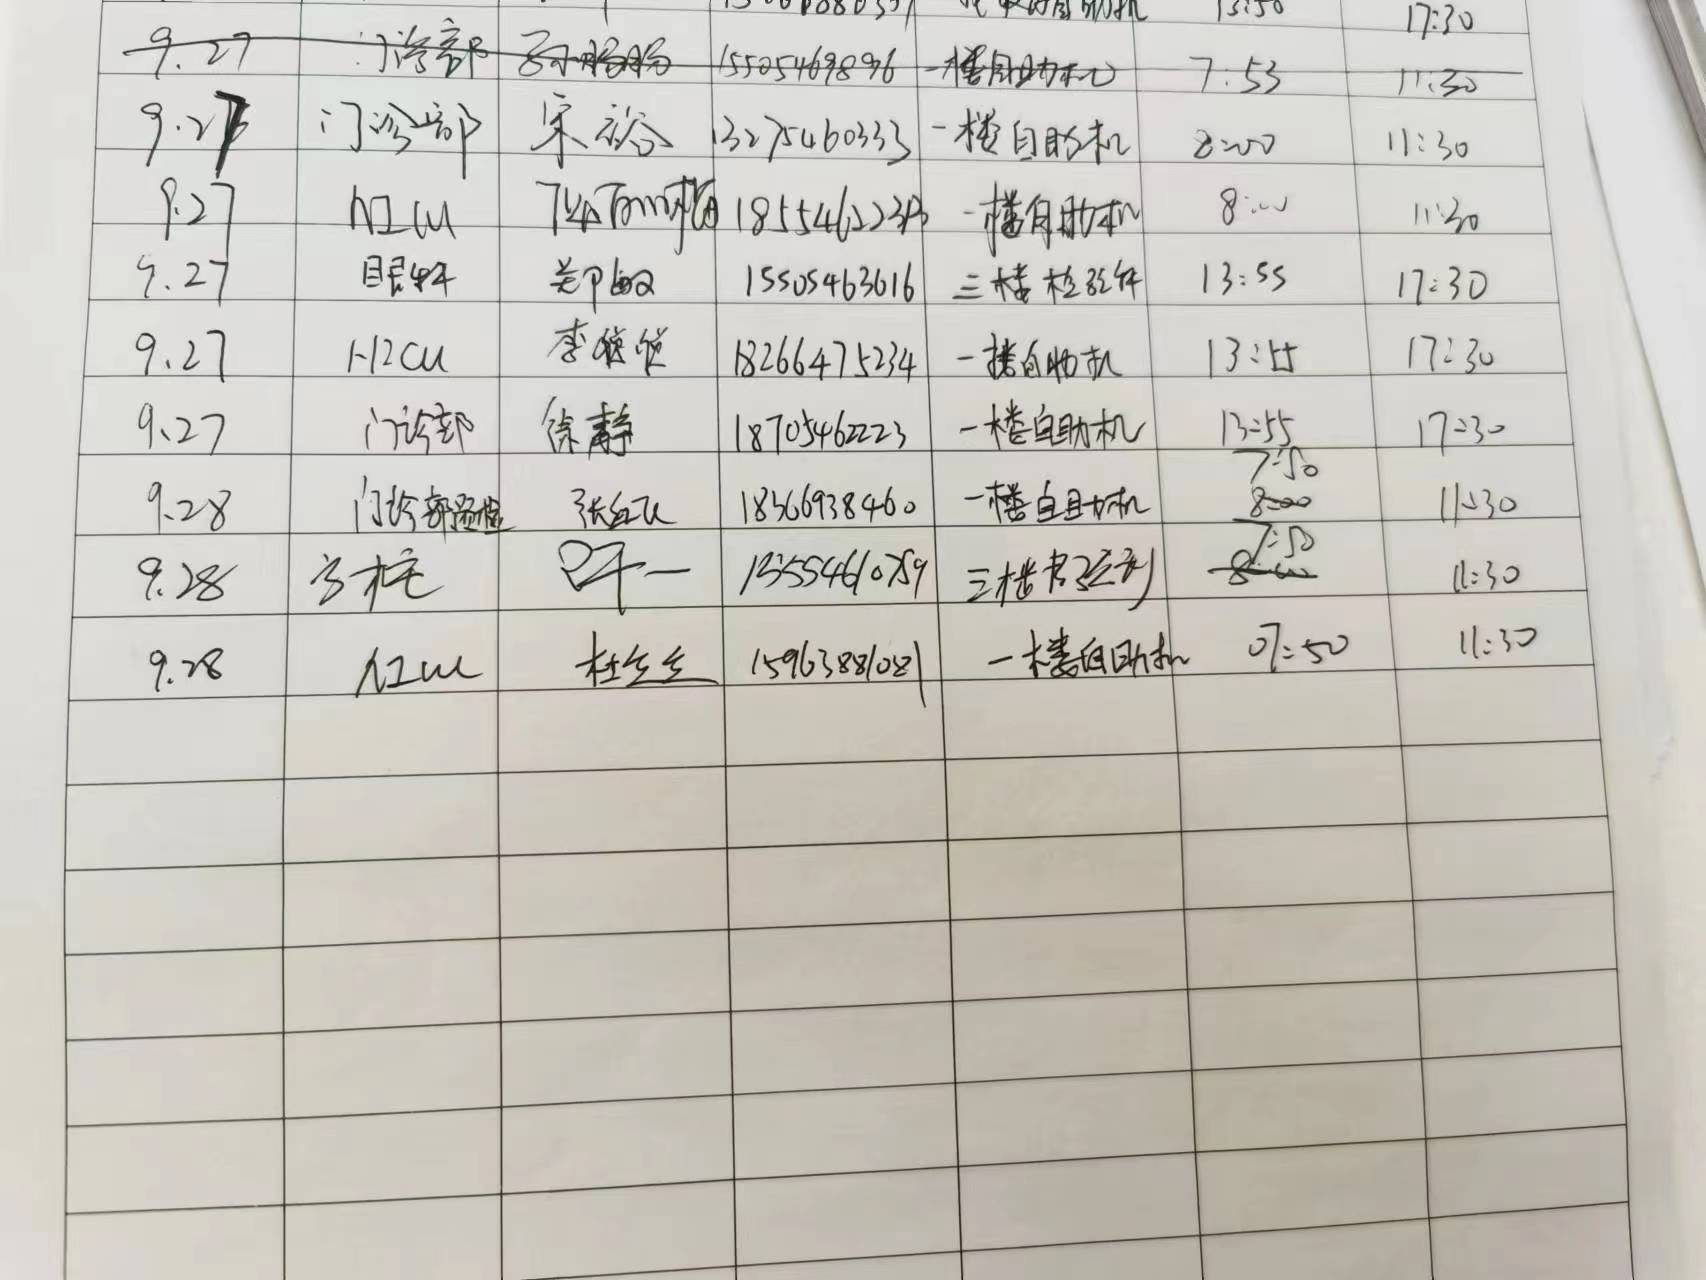 13:50 17:30
9.27 门诊部 15505469896 一楼自助机 7:53 11:30
9.27 门诊部 宋裕 13275460333 一楼自助机 8:00 11:30
9.27 NICU 一楼自助机 8:00 11:30
9.27 眼科 郑敏 15505463616 三楼检验科 13:55 17:30
9.27 HICU 李 18266475234 一楼自助机 13:55 17:30
9.27 门诊部 徐静 18705462223 一楼自助机 13:55 17:30
7:50
9.28 门诊部 张红飞 18366938460 一楼自助机 8:00 11:30
7:50
9.28 三楼 8:00 11:30
9.28 NICU 杜 15963881081 一楼自助机 07:50 11:30